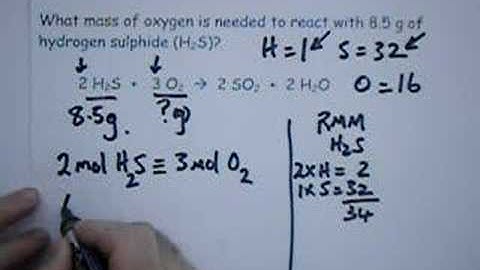 What mass of oxygen is needed to react with 8.5 g of
hydrogen sulphide (H₂S)?
H = 1 S = 32
2 H₂S + 3 O₂ → 2 SO₂ + 2 H₂O O = 16
8.5g. ?g
2 mol H₂S ≡ 3 mol O₂
RMM
H₂S
2xH = 2
1xS = 32
34